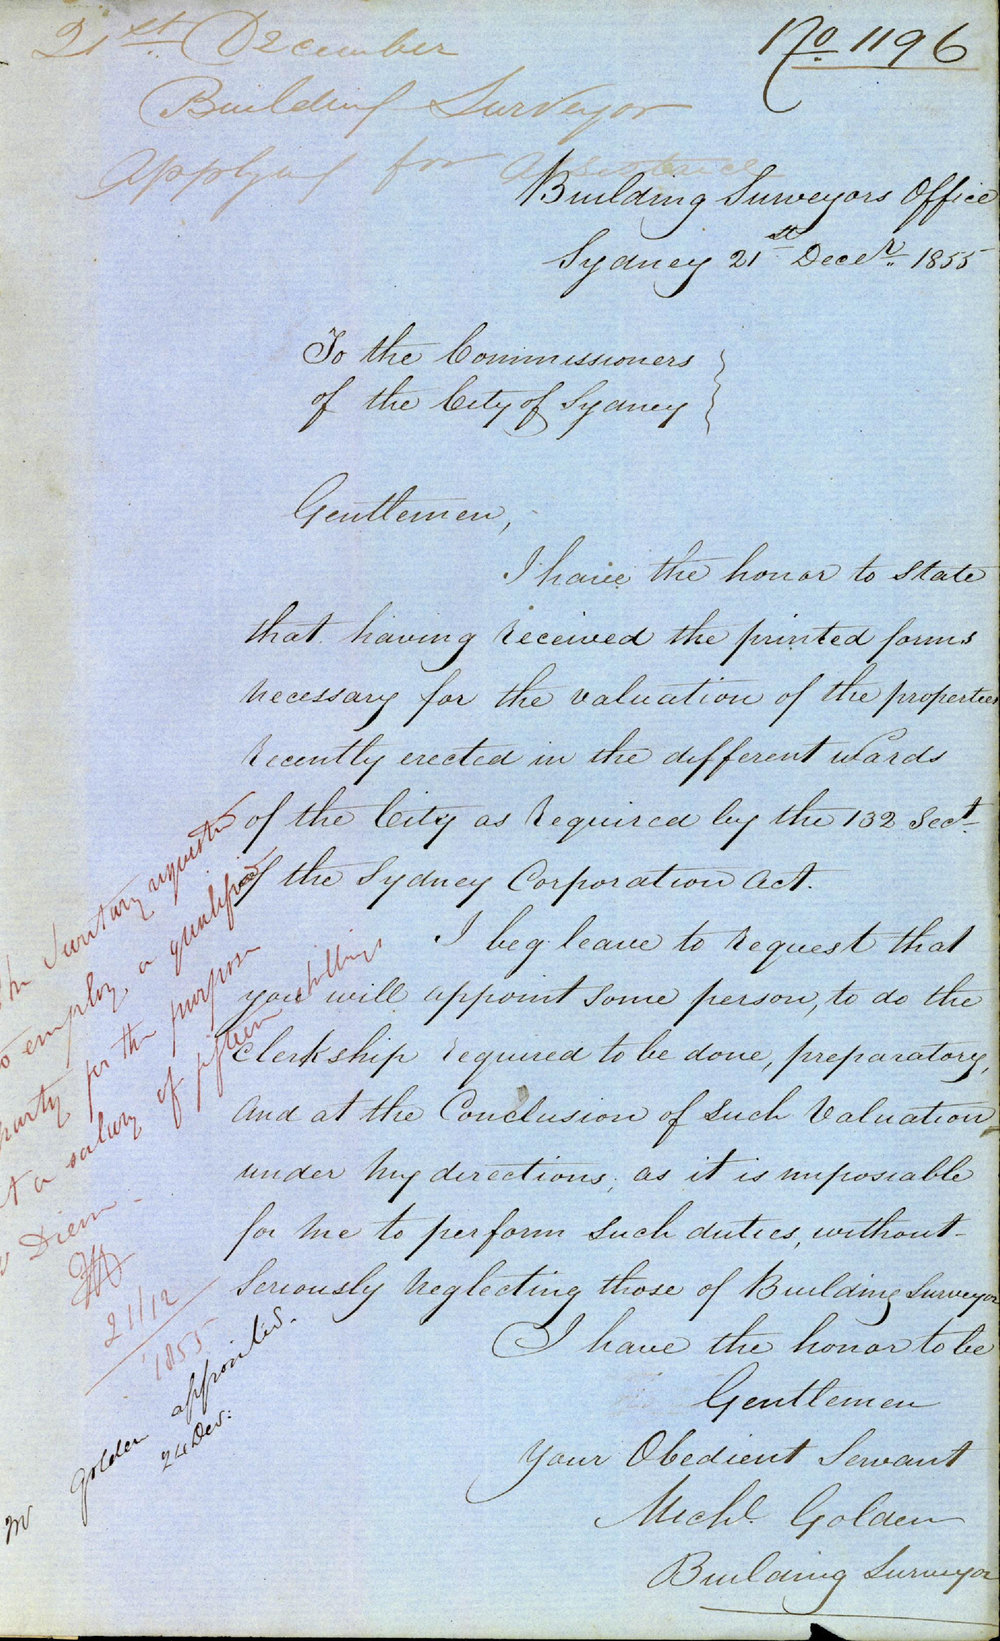 21st December
No 1196
Building Surveyor
Applying for Assistance
Building Surveyors Office
Sydney 21st Decer. 1855
To the Commissioners
of the City of Sydney
Gentlemen,
I have the honor to state
that having received the printed forms
necessary for the valuation of the properties
recently erected in the different wards
of the City as required by the 132 Sect.
of the Sydney Corporation Act.
I beg leave to request that
you will appoint some person, to do the
Clerkship required to be done, preparatory,
and at the Conclusion of such Valuation
under my directions, as it is impossable
for me to perform such duties, without
seriously neglecting those of Building Surveyor
I have the honor to be
Gentlemen
Your Obedient Servant
Michl. Golden
Building Surveyor
the Secretary requested
to employ a qualified
party for the purpose
at a salary of fifteen shillings
Diem
21/12
1855
Mr Golden appointed.
24 Dec: